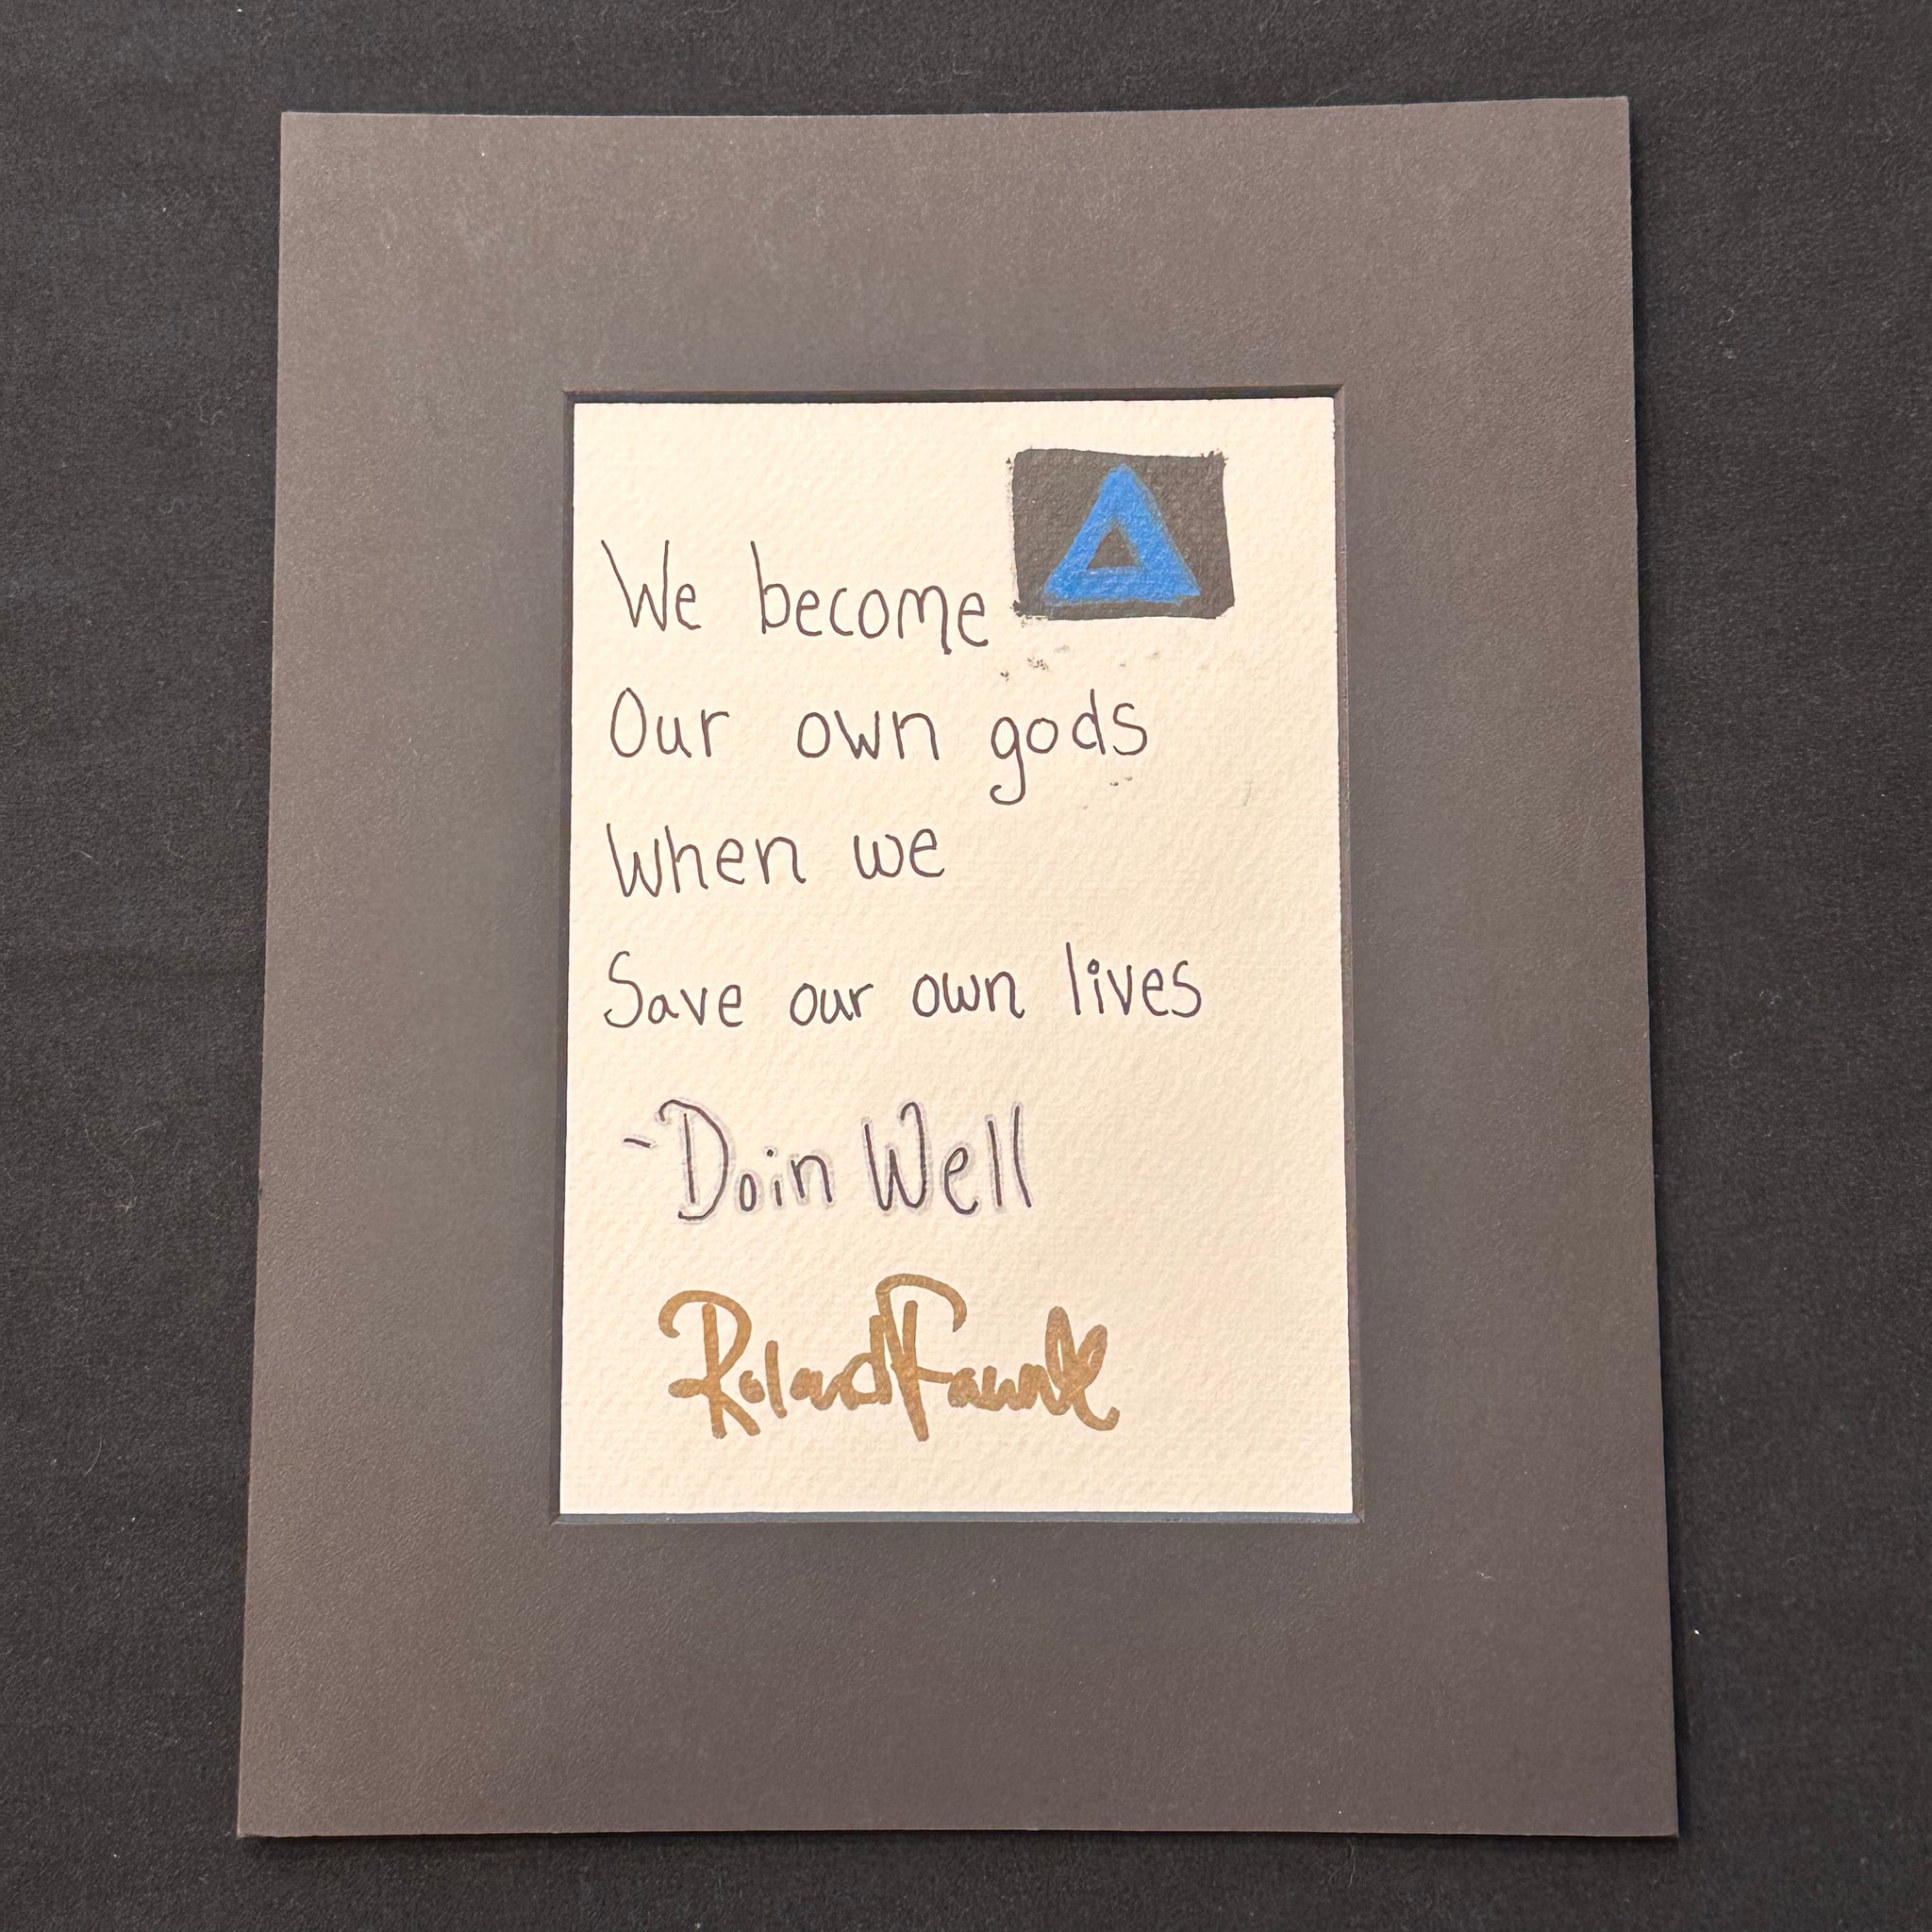 We become
Our own gods
When we
Save our own lives
-Doin Well
Roland Faunte